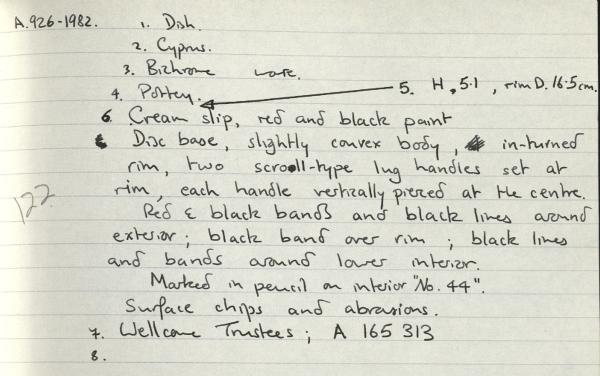 A.926-1982. 1. Dish.
2. Cyprus.
3. Bichrome ware.
4. Pottery. 5. H. 5.1, rim D. 16.5cm.
6. Cream slip, red and black paint
Disc base, slightly convex body, in-turned
rim, two scroll-type lug handles set at
rim, each handle vertically pierced at the centre.
122
Red & black bands and black lines around
exterior; black band over rim; black lines
and bands around lower interior.
Marked in pencil on interior "No. 44".
Surface chips and abrasions.
7. Wellcome Trustees; A 165 313
8.